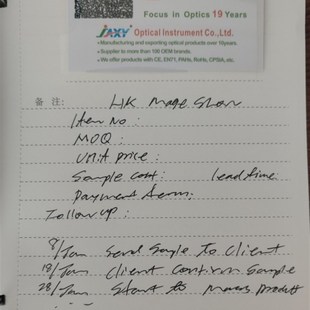 Focus in Optics 19 Years
JAXY Optical Instrument Co.,Ltd.
•Manufacturing and exporting optical products over 19years
•Supplier to more than 100 OEM brands
•We offer products with CE, EN71, PAHs, RoHS, CPSIA, etc.
备 注: HK Mage Show
Item No :
MOQ :
Unit price :
Sample cost: lead time
Payment term:
Follow up :
8/Jan Send Sample to Client
18/Jan Client Confirm Sample
28/Jan Start to